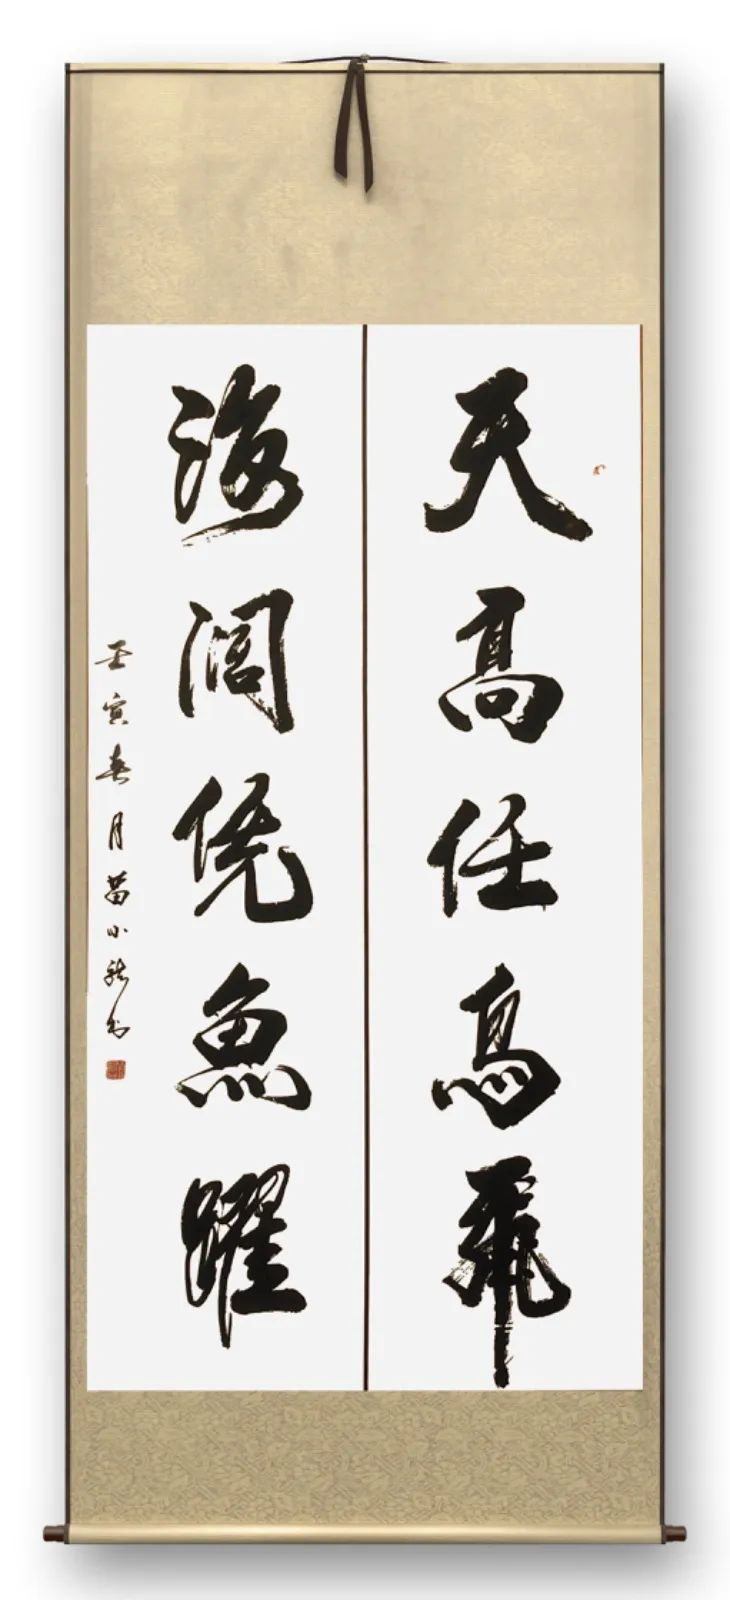 天高任鳥飛
海闊凭魚躍
壬寅春月苗小龍书